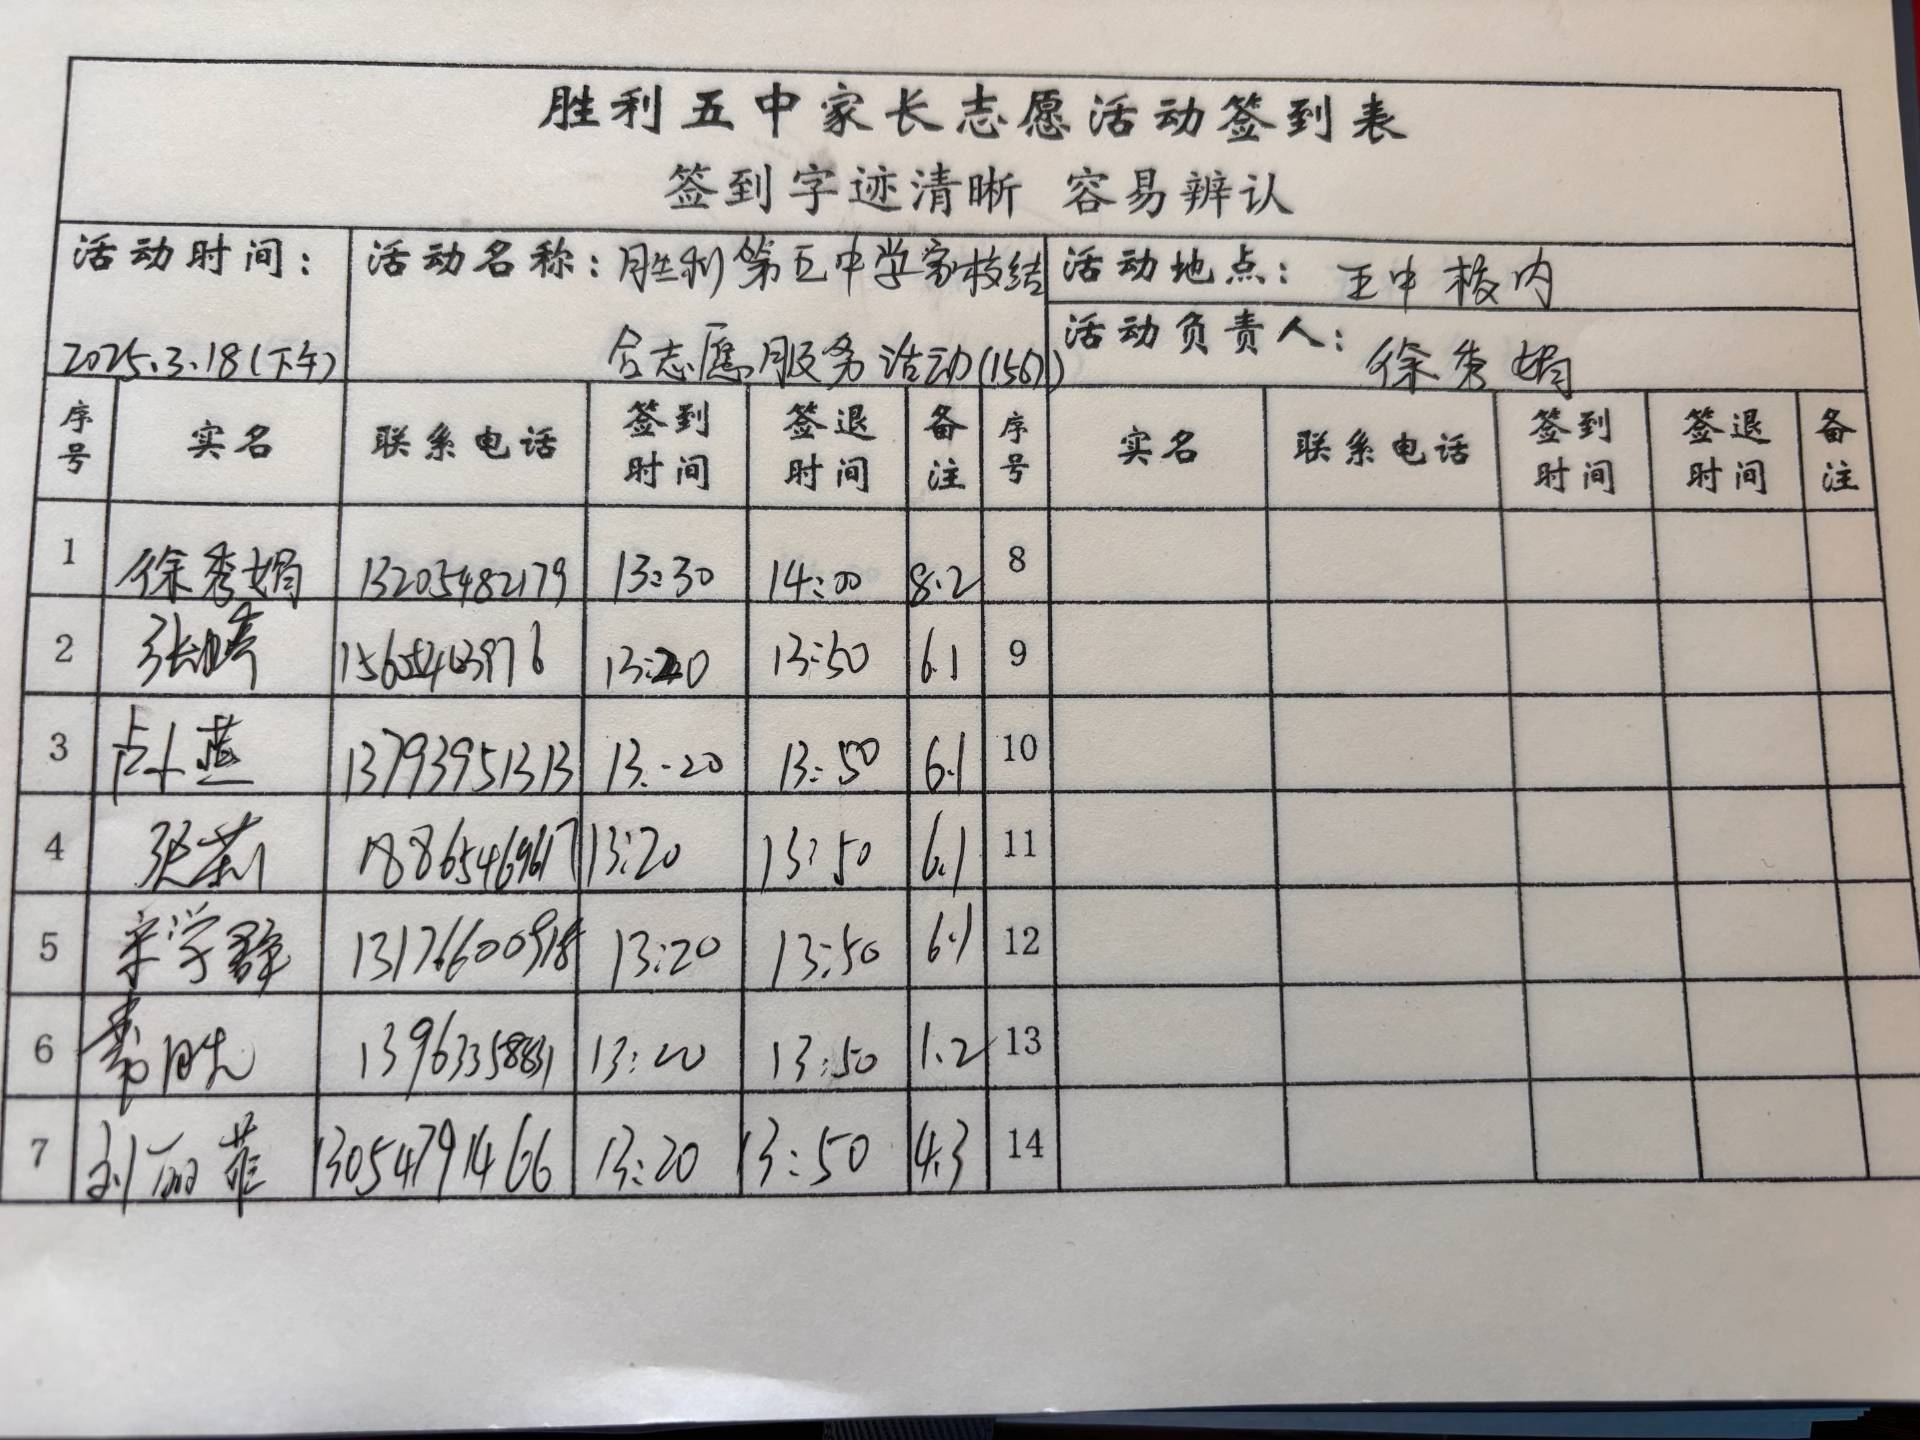 胜利五中家长志愿活动签到表
签到字迹清晰 容易辨认
活动时间：
2025.3.18(下午)
活动名称：胜利第五中学家校结
合志愿服务活动(156)
活动地点：五中校内
活动负责人：徐秀娟
序号 实名 联系电话 签到时间 签退时间 备注 序号 实名 联系电话 签到时间 签退时间 备注
1 徐秀娟 13205482179 13:30 14:00 8.2 8
2 张婷 15605463976 13:20 13:50 6.1 9
3 燕 13793951313 13:20 13:50 6.1 10
4 张莉 18865469617 13:20 13:50 6.1 11
5 宋学静 13176600918 13:20 13:50 6.1 12
6 13963358831 13:20 13:50 1.2 13
7 刘丽菲 13054791466 13:20 13:50 4.3 14